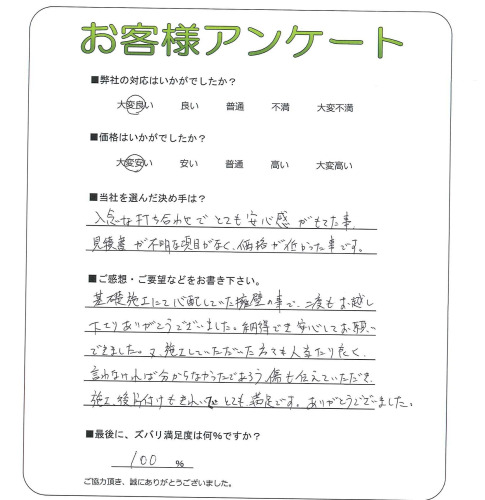 お客様アンケート
■弊社の対応はいかがでしたか？
大変良い 良い 普通 不満 大変不満
■価格はいかがでしたか？
大変安い 安い 普通 高い 大変高い
■当社を選んだ決め手は？
入念な打ち合わせでとても安心感がもてた事、
見積書が不明な項目がなく、価格が低かった事です。
■ご感想・ご要望などをお書き下さい。
基礎施工にて心配していた擁壁の事で、二度もお越し
下さりありがとうございました。納得でき安心してお願い
できました。又、施工していただいた方々も人当たり良く、
言わなければ分からなかったであろう傷も伝えていただき、
施工後片付けもきれいでとても満足です。ありがとうございました。
■最後に、ズバリ満足度は何％ですか？
100 ％
ご協力頂き、誠にありがとうございました。